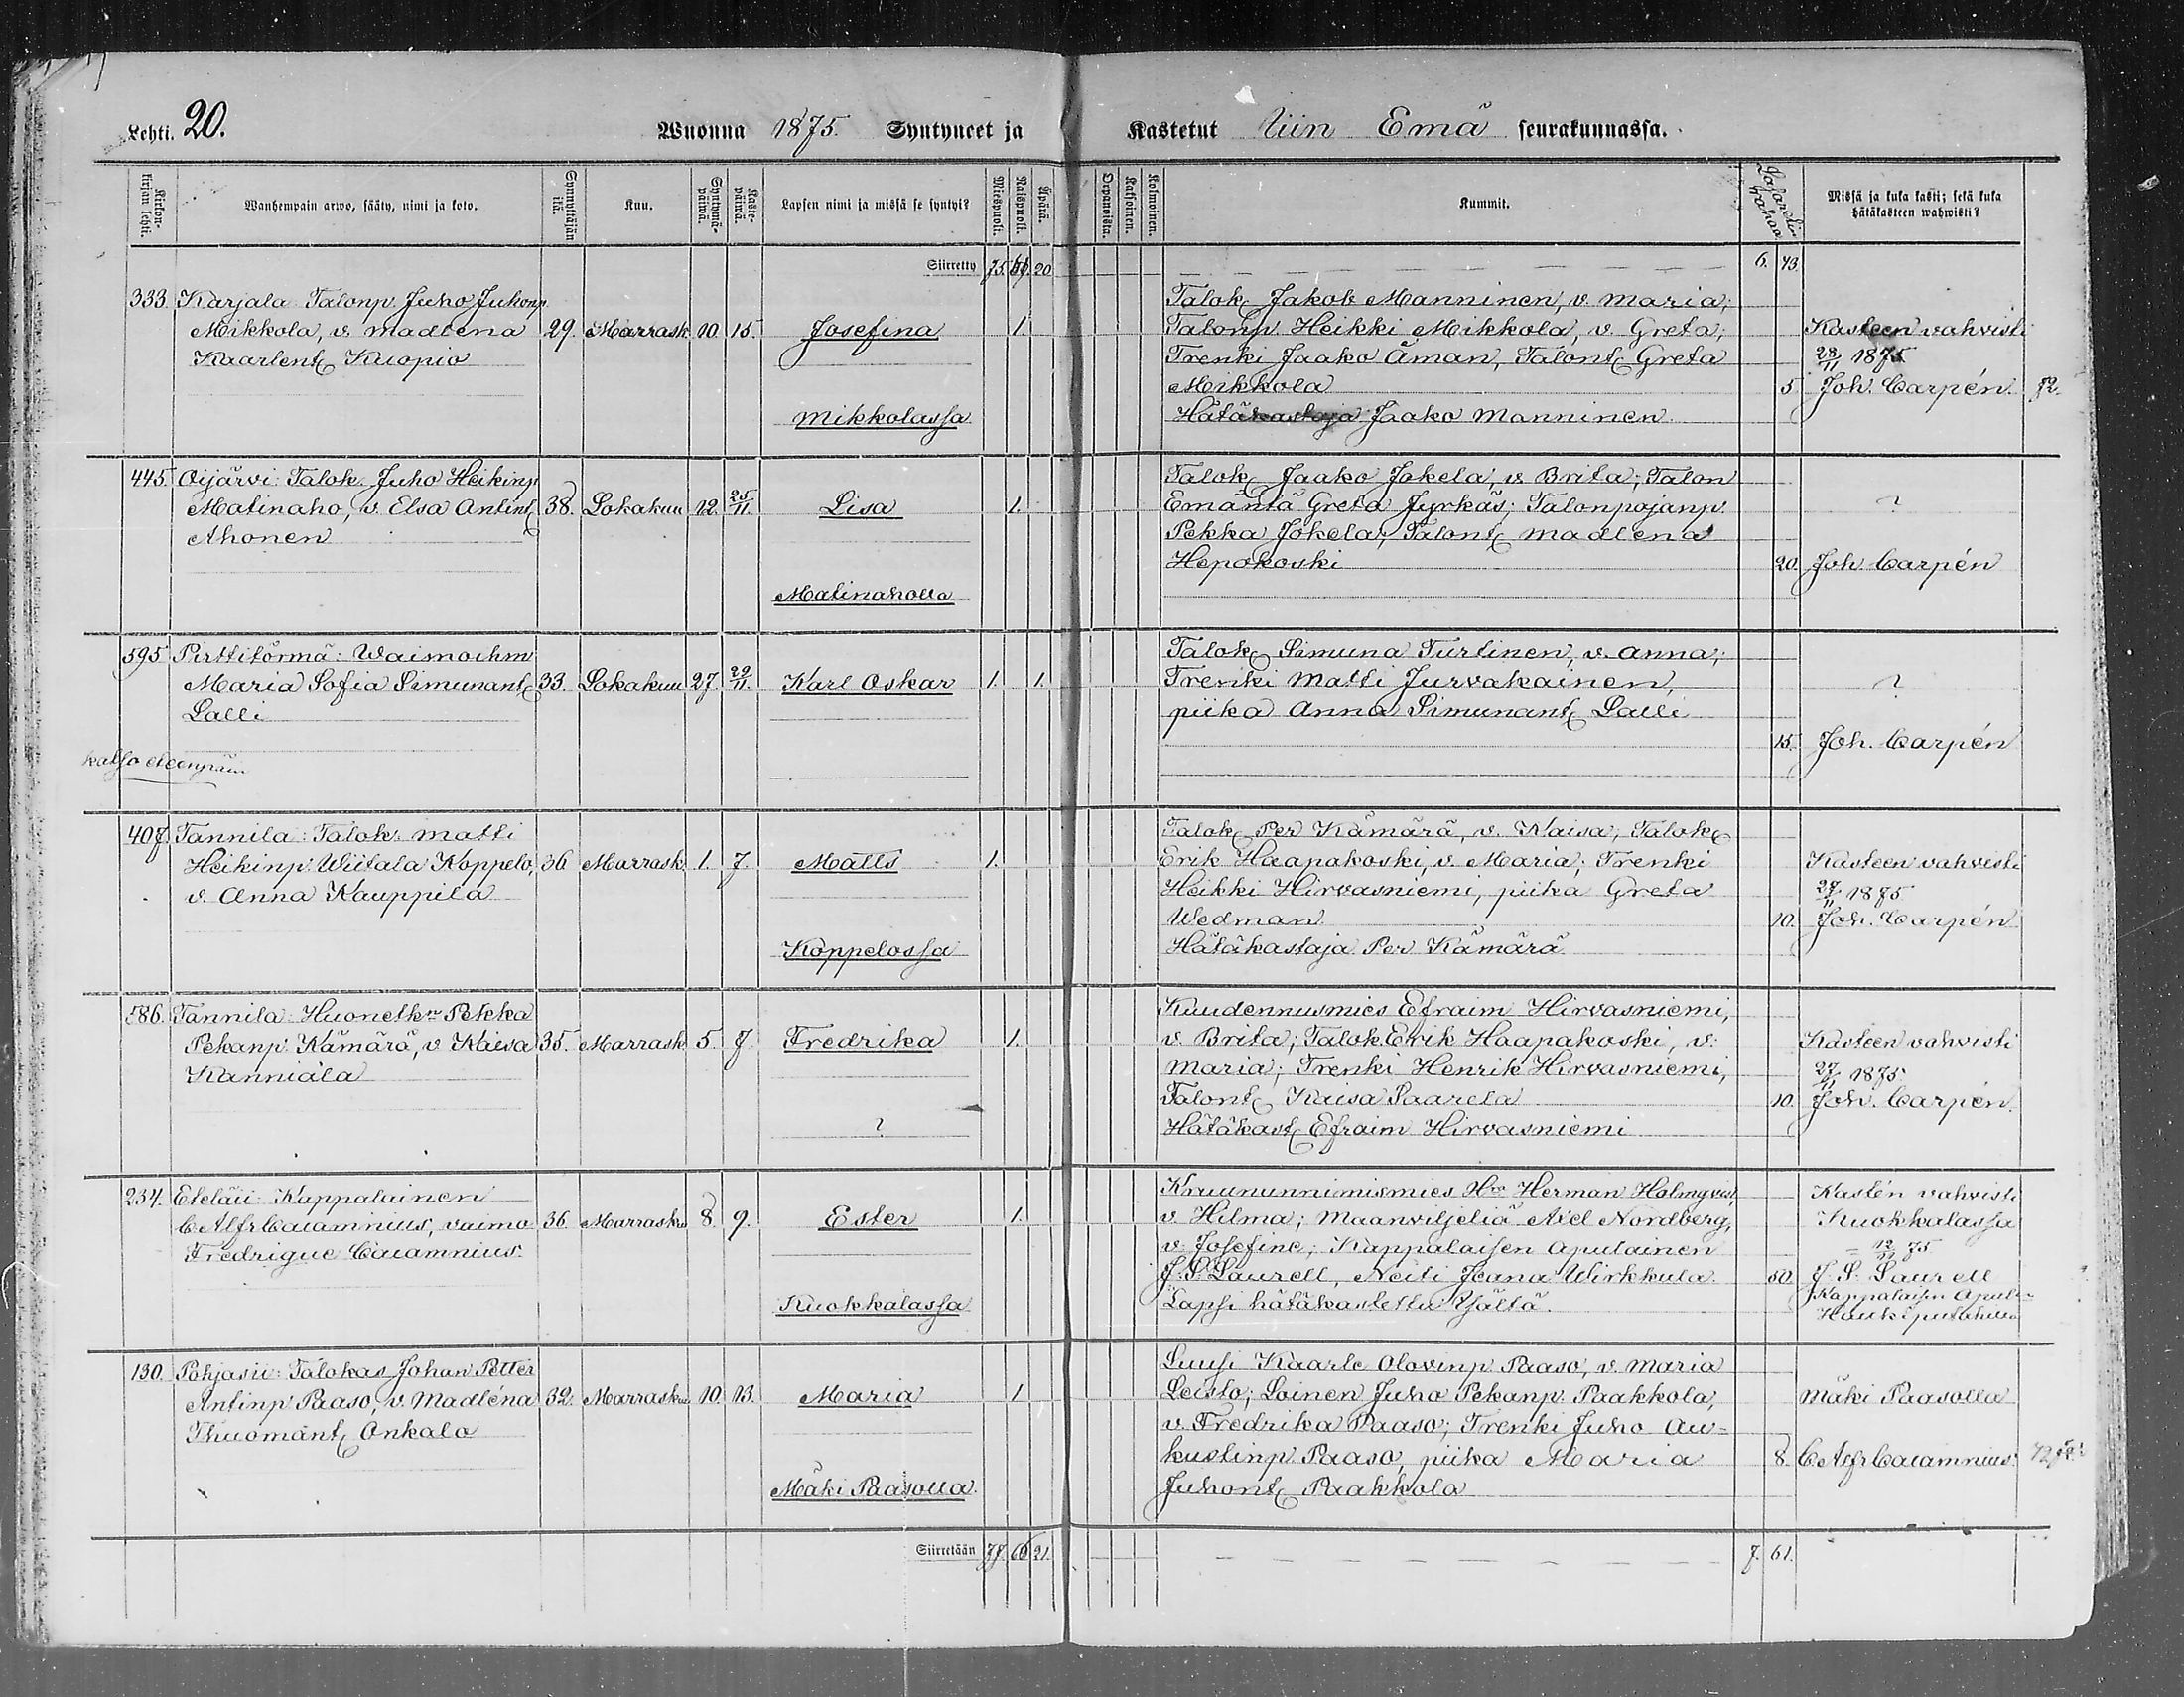 Lehti. 20. Wuonna 1875. Syntyneet ja Kastetut Iiin Emä seurakunnassa.
Kirkonkirjan lehti. Wanhempain arwo, sääty, nimi ja koto. Synnyttäjän ikä. Kuu. Syntymäpäiwä. Kastepäiwä. Lapsen nimi ja missä se syntyi? Miespuoli. Waimopuoli. Äpäriä. Kaksoinen. Kolmoinen. Kummit. Lasaretin rahaa Missä ja kuka kasti; sekä kuka hätäkasteen wahwisti?
Siirretty 75. 20 6. 73.
333. Karjala Talonp. Juho Juhonp
Mikkola, v. Madlena 29. Marrask. 10. 15. Josefina 1.
Kaarlent. Kuopio
Mikkolassa
Talok. Jakob Manninen, v. Maria;
Talonp. Heikki Mikkola, v. Greta;
Trenki Jaako Åman, Talont. Greta
Mikkola 5
Hätäkastaja Jaako Manninen.
Kasteen vahvisti
28/11 1875
Joh. Carpén. 72.
445. Oijärvi: Talok. Juho Heikinp
Matinaho, v. Elsa Antint. 38. Lokakuu 12. 25/11. Lisa 1.
Ahonen
Matinaholla
Talok. Jaako Jokela, v. Brita; Talon
Emäntä Greta Jyrkäs; Talonpojanp.
Pekka Jokela; Talont. Madlena
Hepokoski 20.
?
Joh Carpén
595 Pirttitörmä: Waimoihm
Maria Sofia Simunant. 33. Lokakuu 27. 29/11. Karl Oskar 1. 1.
Lalli
katso eteenpäin
Talok. Simuna Turtinen, v. Anna;
Trenki Matti Jurvakainen,
piika Anna Simunant. Lalli
15.
?
Joh. Carpén
407. Tannila: Talok. Matti
Heikinp. Wiitala Koppelo, 36 Marrask. 1. 7. Matts 1.
v. Anna Kauppila
Koppelossa
Talok. Per Kämärä, v. Kaisa; Talok.
Erik Haapakoski, v. Maria; Trenki
Heikki Hirvasniemi, piika Greta
Wedman 10.
Hätäkastaja Per Kämärä
Kasteen vahvisti
27/11 1875
Joh. Carpén
586. Tannila: Huonetkr. Pekka
Pekanp. Kämärä, v. Kaisa 35. Marrask. 5. 7. Fredrika 1.
Kanniala
?
Kuudennusmies Efraim Hirvasniemi,
v. Brita; Talok. Erik Haapakoski, v.
Maria; Trenki Henrik Hirvasniemi,
Talont. Kaisa Paarela 10.
Hätäkast. Efraim Hirvasniemi
Kasteen vahvisti
27/11 1875.
Joh. Carpén.
234. Eteläii: Kappalainen
C Alfr Cajamnius, vaimo 36. Marrasku 8. 9. Ester 1.
Fredrique Cajamnius.
Kuokkalassa
Kruununnimismies Hra Herman Holmqvist,
v. Hilma; Maanviljeliä Axel Nordberg,
v. Josefine; Kappalaisen Apulainen
J. P. Laurell, Neiti Jeana Wirkkula. 50.
Lapsi hätäkastettu Isältä.
Kastén vahvisti
Kuokkalassa
12/11 75
J. P. Laurell
Kappalaisen Apul
130. Pohjasii: Talokas Johan Petter
Antinp Paaso, v. Madléna 32. Marrasku 10. 13. Maria 1
Thuomant. Onkalo
Mäki Paasolla.
Luusi Kaarle Olovinp. Paaso, v. Maria
Leisto; Loinen Juho Pekanp. Paakkola,
v. Fredrika Paaso; Trenki Juho Au-
kustinp. Paaso, piika Maria 8.
Juhont. Paakkola
Mäki Paasolla
C Alfr Cajamnius.
Siirretään 77. 21. 7. 61.